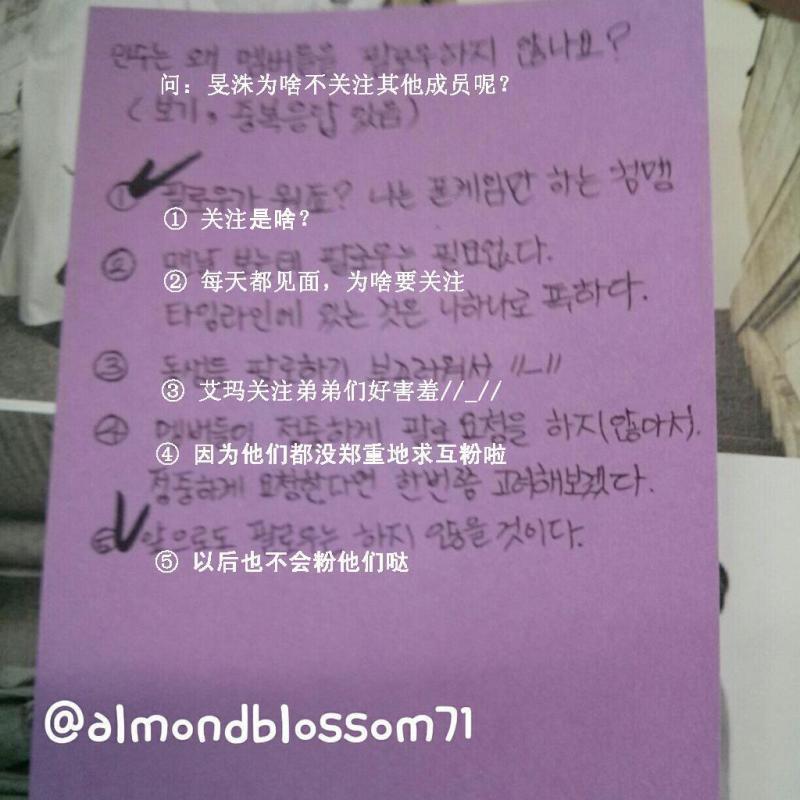 민수는 왜 멤버들을 팔로우하지 않나요?
问：旻洙为啥不关注其他成员呢？
(보기, 중복응답 있음)
① 팔로우가 뭐죠? 나는 폰게임만 하는 컴맹
① 关注是啥？
② 맨날 보는데 팔로우는 필요없다.
② 每天都见面，为啥要关注
타임라인에 있는 것은 나하나로 족하다.
③ 동생들 팔로하기 부끄러워서 //_//
③ 艾玛关注弟弟们好害羞//_//
④ 멤버들이 정중하게 팔로 요청을 하지(않아서).
④ 因为他们都没郑重地求互粉啦
정중하게 요청한다면 한번쯤 고려해보겠다.
⑤ 앞으로도 팔로우는 하지 않을것이다.
⑤ 以后也不会粉他们哒
@almondblossom71